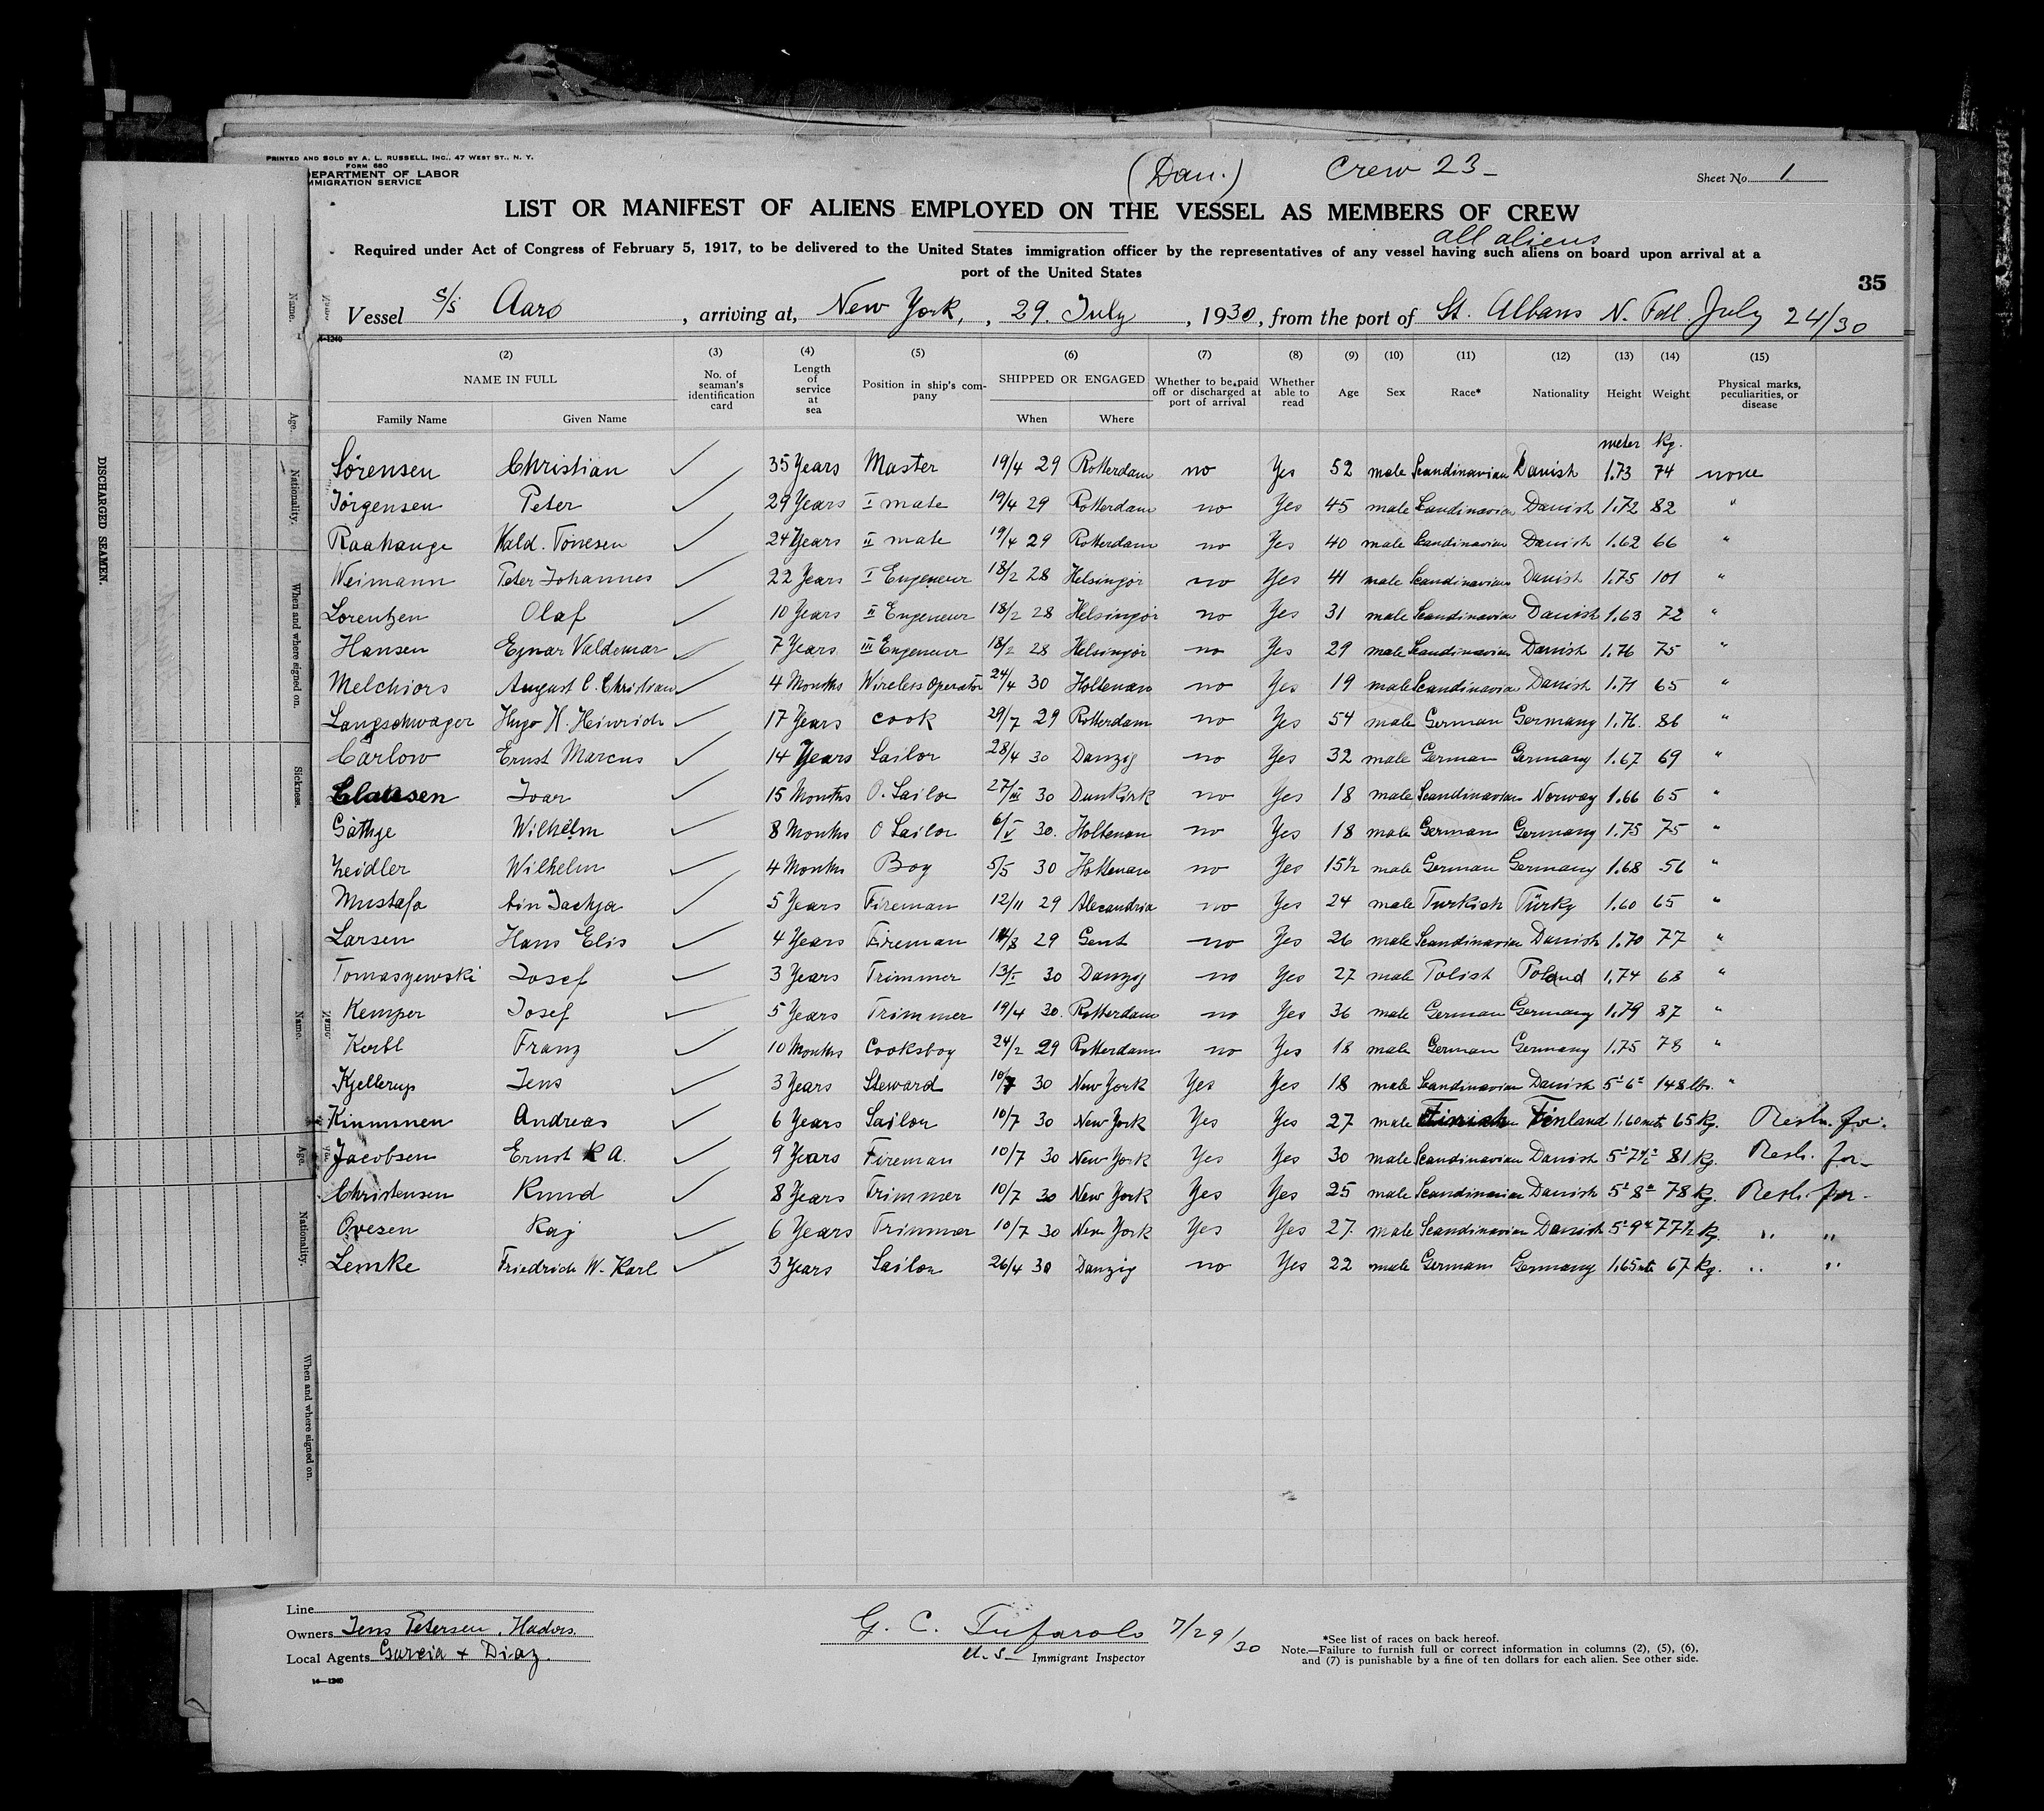 PRINTED AND SOLD BY A. L. RUSSELL, INC., 47 WEST ST., N. Y.
FORM 680
DEPARTMENT OF LABOR
IMMIGRATION SERVICE
(Dan.) Crew 23 - Sheet No. 1
LIST OR MANIFEST OF ALIENS EMPLOYED ON THE VESSEL AS MEMBERS OF CREW
all aliens
Required under Act of Congress of February 5, 1917, to be delivered to the United States immigration officer by the representatives of any vessel having such aliens on board upon arrival at a
port of the United States
35
Vessel S/S Aaro, arriving at, New York, , 29. July, 1930, from the port of St. Albans N. Fdl. July 24/30
(2) (3) (4) (5) (6) (7) (8) (9) (10) (11) (12) (13) (14) (15)
NAME IN FULL No. of seaman's identification card Length of service at sea Position in ship's company SHIPPED OR ENGAGED Whether to be paid off or discharged at port of arrival Whether able to read Age Sex Race* Nationality Height Weight Physical marks, peculiarities, or disease
Family Name Given Name When Where
meter kg.
Sörensen Christian ✓ 35 Years Master 19/4 29 Rotterdam no Yes 52 male Scandinavian Danish 1.73 74 none
Jörgensen Peter ✓ 29 Years I mate 19/4 29 Rotterdam no Yes 45 male Scandinavian Danish 1.72 82 "
Raahauge Vald. Tönesen ✓ 24 Years II mate 19/4 29 Rotterdam no Yes 40 male Scandinavian Danish 1.62 66 "
Weimann Peter Johannes ✓ 22 Years I Engeneur 18/2 28 Helsingör no Yes 41 male Scandinavian Danish 1.75 101 "
Lorentzen Olaf ✓ 10 Years II Engeneur 18/2 28 Helsingör no Yes 31 male Scandinavian Danish 1.63 72 "
Hansen Ejnar Valdemar ✓ 7 Years III Engeneur 18/2 28 Helsingör no Yes 29 male Scandinavian Danish 1.76 75 "
Melchiors August C. Christian ✓ 4 Months Wireless Operator 24/4 30 Holtenau no Yes 19 male Scandinavian Danish 1.71 65 "
Langschwager Hugo H. Heinrich ✓ 17 Years cook 29/7 29 Rotterdam no Yes 54 male German Germany 1.76. 86 "
Carlow Ernst Marcus ✓ 14 Years Sailor 28/4 30 Danzig no Yes 32 male German Germany 1.67 69 "
Clausen Ivar ✓ 15 Months O. Sailor 27/III 30 Dunkirk no Yes 18 male Scandinavian Norway 1.66 65 "
Gäthje Wilhelm ✓ 8 Months O Sailor 6/V 30. Holtenau no Yes 18 male German Germany 1.75 75 "
Zeidler Wilhelm ✓ 4 Months Boy 5/5 30 Holtenau no Yes 15½ male German Germany 1.68 56 "
Mustafa Ain Jachja ✓ 5 Years Fireman 12/11 29 Alexandria no Yes 24 male Turkish Türky 1.60 65 "
Larsen Hans Elis ✓ 4 Years Fireman 14/8 29 Gent no Yes 26 male Scandinavian Danish 1.70 77 "
Tomaszewski Josef ✓ 3 Years Trimmer 13/I 30 Danzig no Yes 27 male Polish Poland 1,74 63 "
Kemper Josef ✓ 5 Years Trimmer 19/4 30. Rotterdam no Yes 36 male German Germany 1.79 87 "
Franz ✓ 10 Months Cooksboy 24/2 29 Rotterdam no Yes 18 male German Germany 1.75 78 "
Kjellerup Jens ✓ 3 Years Steward 10/7 30 New York Yes Yes 18 male Scandinavian Danish 5' 6" 148 lbs. "
Kinnunen Andreas ✓ 6 Years Sailor 10/7 30 New York Yes Yes 27 male Finish Finland 1.60 mtr 65 kg.
Jacobsen Ernst R A. ✓ 9 Years Fireman 10/7 30 New York Yes Yes 30 male Scandinavian Danish 5' 7½" 81 kg.
Christensen Knud ✓ 8 Years Trimmer 10/7 30 New York Yes Yes 25 male Scandinavian Danish 5' 8" 78 kg.
Ovesen Kaj ✓ 6 Years Trimmer 10/7 30 New York Yes Yes 27. male Scandinavian Danish 5' 9" 77½ kg. " "
Lemke Friedrich W. Karl ✓ 3 Years Sailor 26/4 30 Danzig no Yes 22 male German Germany 1.65 mtr 67 kg. " "
Line
Owners Jens Petersen, Haders.
Local Agents Garcia + Diaz.
14—1240
G. C. Tufarolo 7/29/30
U.S. Immigrant Inspector
*See list of races on back hereof.
Note.—Failure to furnish full or correct information in columns (2), (5), (6),
and (7) is punishable by a fine of ten dollars for each alien. See other side.
DISCHARGED SEAMEN.
Name.
Age.
Nationality.
When and where signed on.
Sickness.
Name.
Age.
Nationality.
When and where signed on.